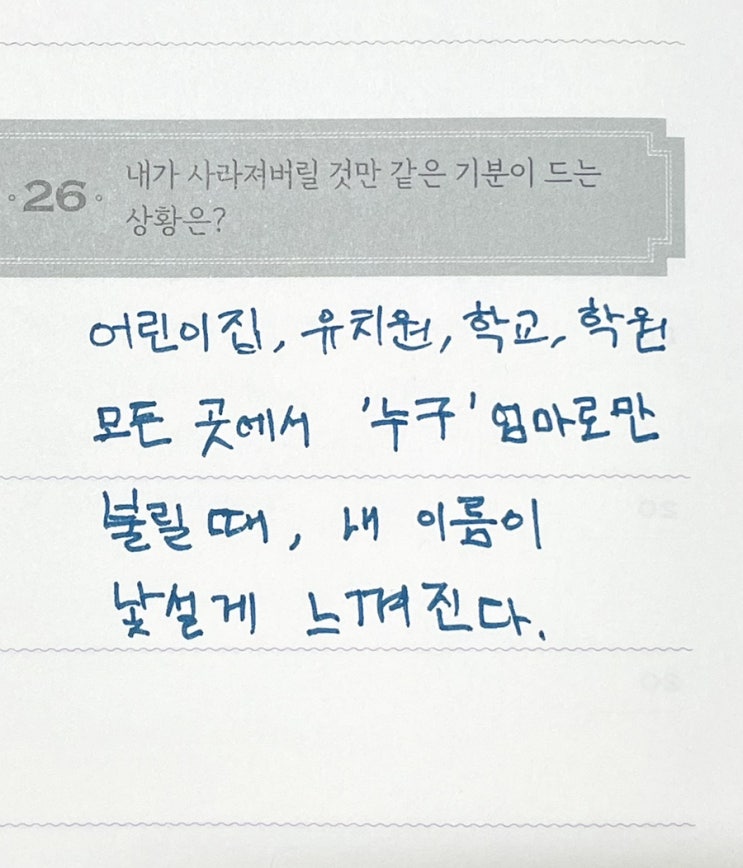 26 내가 사라져버릴 것만 같은 기분이 드는
상황은?
어린이집, 유치원, 학교, 학원
모든 곳에서 '누구' 엄마로만
불릴 때, 내 이름이
낯설게 느껴진다.